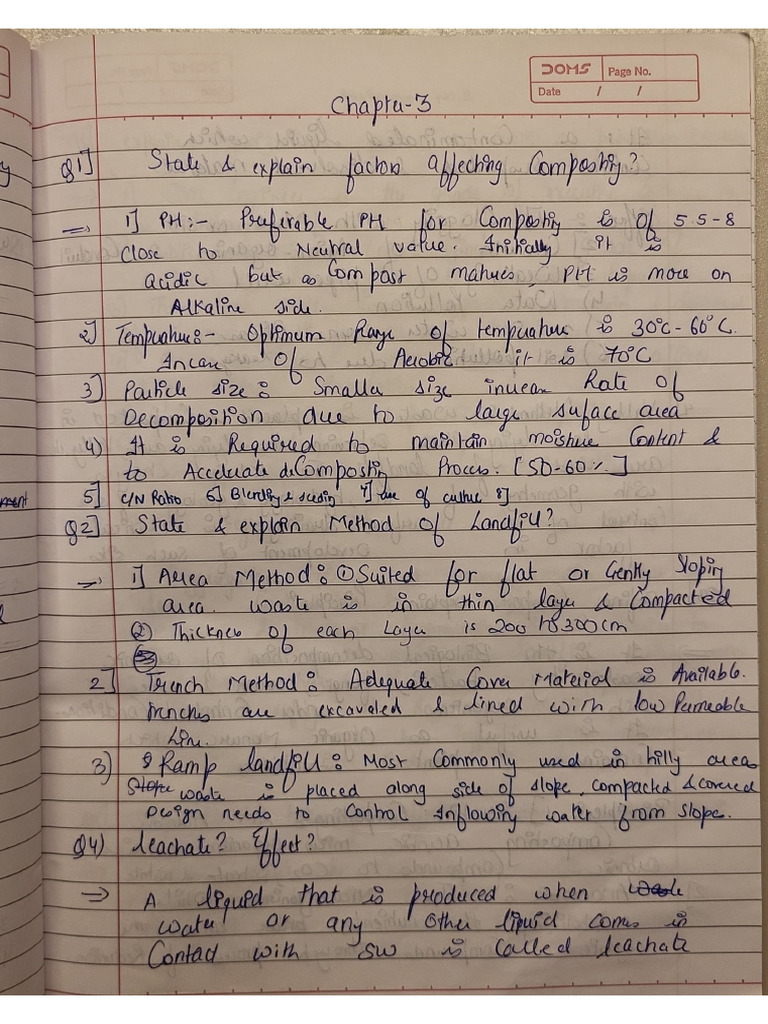 DOMS
Page No.
Date / /
Chapter-3
Q1] State & explain factors affecting Composting?
→ 1] PH:- Preferable PH for Composting is of 5.5-8
close to Neutral value. Initially it is
acidic but as Compost matures, PH is more on
Alkaline side.
2] Temperature:- Optimum Range of temperature is 30°C-60°C.
Incase Of Aerobic it is 70°C
3] Particle size: Smaller size increase Rate of
Decomposition due to large surface area
4) It is Required to maintain moisture Content &
to Accelerate deComposting Process. [50-60%]
5] C/N Ratio 6] Blending & seeding 7] Use of culture 8]
Q2] State & explain Method of Landfill?
→ 1] Area Method: ① Suited for flat or Gently Sloping
area. waste is in thin layer & Compacted
② Thickness Of each Layer is 200 to 300cm
2] Trench Method: Adequate Cover Material is Available.
trenches are excavated & lined with low Permeable
Line.
3) Ramp landfill: Most Commonly used in hilly areas
waste is placed along side of slope, compacted & covered
Design needs to Control Inflowing water from slope.
Q4) leachate? Effect?
⇒ A liquid that is produced when
water or any other liquid comes in
Contact with SW is called leachate